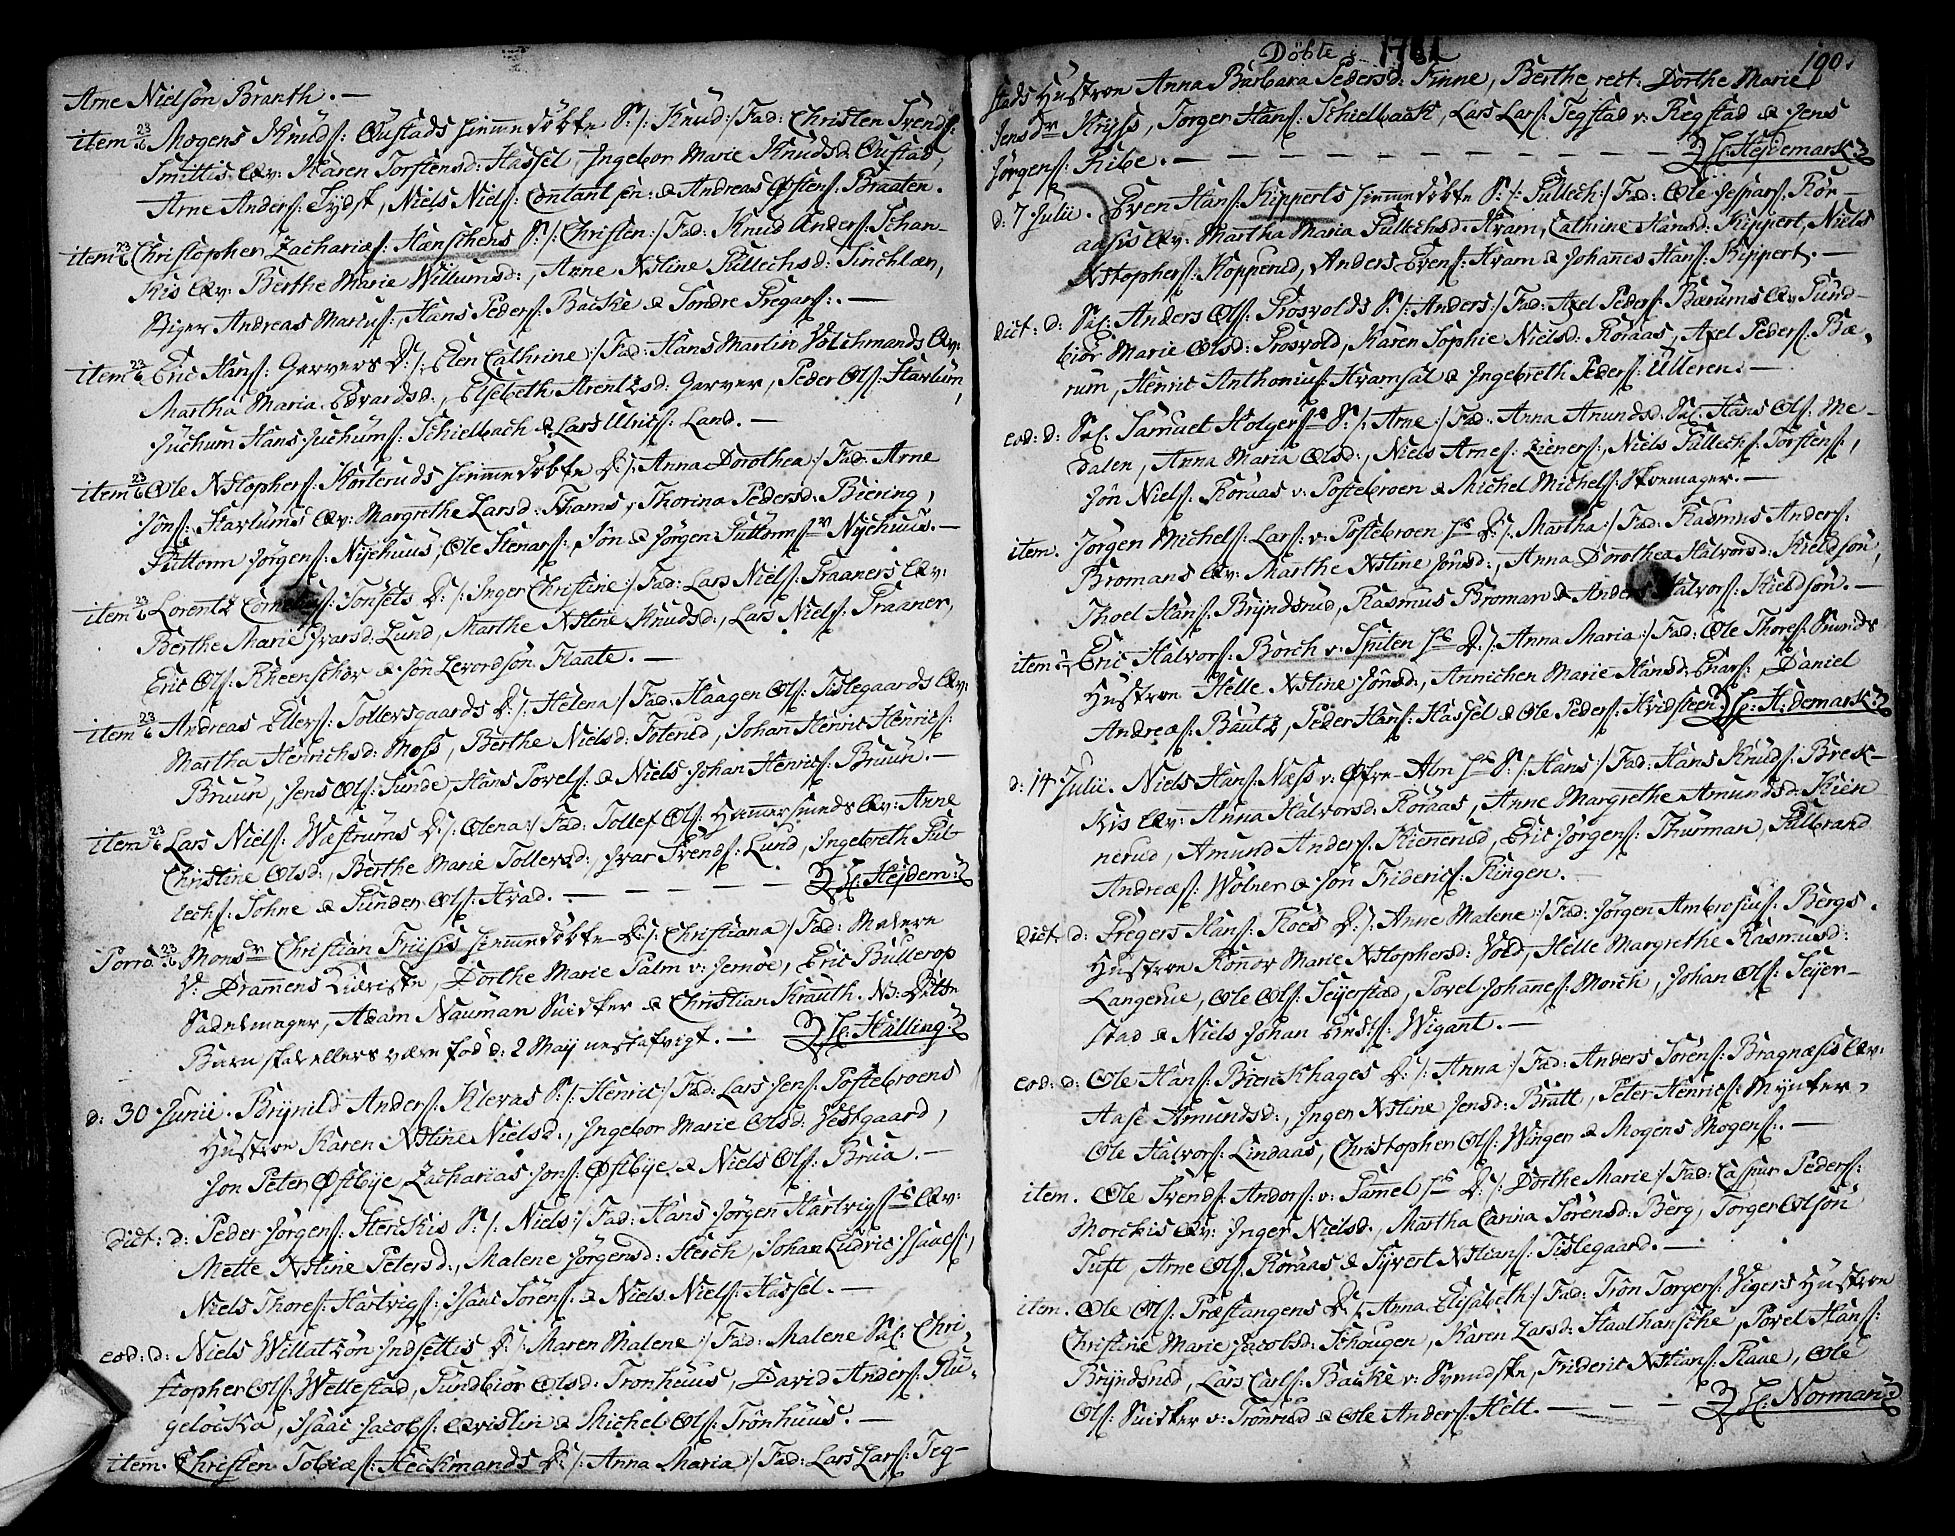 Arne Nielsön Branth. —
item 23/6 Mogens Knuds: Custads hiemmedöbte S: /: Knud :/ Fad: Christen Svends:
Smittis Qv: Karen Torstensd: Hassel, Ingebor Marie Knudsd: Custad,
Arne Anders: Tydsk, Niels Niels: Contantsen: & Andreas Östens: Braaten.
item 23/6 Christopher Zachariæs: Hænschens S: /: Christen :/ Fad: Knud Anders: Schan-
kis Qv: Berthe Marie Willumsd:, Anne Xstine Gullechsd:
Biger Andreas Marius:, Hans Peders: Backe & Tondre Gregars:. —
item 23/6 Eric Hans: Garvers D: /: Elen Cathrine :/ Fad: Hans Martin Volchmands Qv:
Martha Maria Edvardsd:, Elsebeth Arentzsd: Garver, Peder Ols: Harlum,
Juchum Hans Juchums: Schielbach & Lars Ulrics: Land. —
item 23/6 Ole Xstophers: Korteruds hiemmedöbte D: /: Anna Dorothea :/ Fad: Arne
Jöns: Harlums Qv: Margrethe Larsd: Thams, Thorina Pedersd: Beiering,
Guttorm Jörgens: Nyehuus, Ole Stenars: Jön & Jörgen Guttorms: Nyehuus. —
item 23/6 Lorentz Cornelius: Tonsets D: /: Inger Christine :/ Fad: Lars Niels: Graaners Qv:
Berthe Marie Ivarsd: Lund, Marthe Xstine Knudsd:, Lars Niels: Graaner,
Eric Ols: Rheenschov & Jön Levordsön Flaate. —
item 23/6 Andreas Ellers: Tollersgaards D: /: Helena :/ Fad: Haagen Ols: Gislegaards Qv:
Martha Henrichsd: Moss, Berthe Nielsd: Toterud, Johan Henric Henrics:
Bruun, Jens Ols: Sunde, Hans Povels: & Niels Johan Henrics: Bruun. —
item 23/6 Lars Niels: Wæstrums D: /: Olena :/ Fad: Tollef Ols: Hamersunds Qv: Anne
Christine Olsd:, Berthe Marie Tollevsd:, Ivar Svends: Lund, Ingebreth Gul-
lechs: Sohne & Gunder Ols: Hvad. — — — — — Hr: Heydem:
Porro 23/6 Monsr Christian Friisis hiemmedöbte D: /: Christiana :/ Fad: Malene
V: Dramens Ludviske, Dorthe Marie Palm v: Jernöe, Eric Bullerop
Sadelmager, Adam Nauman Snidker & Christian Krauth. NB: Dette
Barn skal ellers være föd d: 2 Maij nestafvigt. — Hr: Halling
d: 30 Junii. Brynild Anders: Klevas S: /: Henric :/ Fad: Lars Jens: Gostebroens
Hustroe Karen Xstine Nielsd:, Ingebor Marie Olsd: Vestgaard,
Jon Peter Östbye, Zacharias Jons: Östbye & Niels Ols: Brua. —
Dict: d: Peder Jörgens: Herchis S: /: Niels :/ Fad: Hans Jörgen Hartvigss Qv:
Mette Xstine Petersd:, Malene Jörgensd: Hesch, Johan Ludvic Isacs:,
Niels Thores: Hartvigs: Isaac Sörens: & Niels Niels: Hassel. —
eod: d: Niels Willatzön Indsettis D: /: Maren Malene :/ Fad: Malene Sal: Chri-
stopher Ols: Wettestad, Gundbiör Olsd: Tronhuus, David Anders: Slu-
gelöcka, Isaac Jacobs: Qvislin & Michel Ols: Trönhuus. —
item. Christen Tobiæs: Heckmands D: /: Anna Maria :/ Fad: Lars Lars: Teg-
Döbte 1781 190.
stads Hustroe Anna Barbara Pedersd: Finne, Berthe, rect: Dorthe Marie
Jensdr Kryss, Torger Hans: Schielback, Lars Lars: Tegstad v: Regstad & Jens
Jörgens: Kibe. — — — — — — — Hr: Heydemark
d: 7 Julii. Even Hans: Kipperts hiemmedöbte S: /: Gullech :/ Fad: Ole Jespars: Rör-
aasis Qv: Martha Maria Gullechsd: Kram, Cathrine Hansd: Kippert, Niels
Xstophers: Kopperud, Anders Evens: Kram & Johannes Hans: Kippert. —
dict: d: Sal: Anders Ols: Grosvolds S: /: Anders :/ Fad: Axel Peders: Bærums Qv: Gund-
biör Marie Olsd: Grosvold, Karen Sophie Nielsd: Röraas, Axel Peders: Bæ-
rum, Henric Anthonius: Kramsal & Ingebreth Peders: Ulleren. —
eod: d: Sal: Samuel Holgerss S: /: Arne :/ Fad: Anna Amundsd: Sal: Hans Ols: Me-
dalen, Anna Maria Olsd:, Niels Arnes: Zieners:, Niels Gullechs: Torstens:,
Jön Niels: Röraas v: Gostebroen & Michel Michels: Skremager. —
item. Jörgen Michels: Lars: v: Gostebroen hs D: /: Martha :/ Fad: Rasmus Anders:
Bromans Qv: Marthe Xstine Jönsd:, Anna Dorothea Halvorsd: Kieldsön,
Thoel Hans: Bryndsrud, Rasmus Broman & Anders Halvors: Kieldsön. —
item Eric Halvors: Borch v: Spiten hs D: /: Anna Maria :/ Fad: Ole Thores: Svends
Hustroe Helle Xstine Jönsd:, Annichen Marie Hansd: Enars:, Daniel
Andreæs: Bautz, Peder Hans: Hassel & Ole Peders: Hvidsteen. Hr: Heidemark
d: 14 Julii. Niels Hans: Næss v: Öfre-Alm hs S: /: Hans :/ Fad: Hans Knuds: Brek-
kis Qv: Anna Halvorsd: Röraas, Anne Margrethe Amundsd: Kien-
nerud, Amund Anders: Kiennerud, Eric Jörgens: Thurman, Gulbrand
Andreæs: Wolner & Jon Friderics: Ringen. —
Dict: d: Gregers Hans: Roes D: /: Anne Malene :/ Fad: Jörgen Ambrosius: Bergs
Hustroe Ronnov Marie Xstophersd: Vold, Helle Margrethe Rasmusd:
Langerue, Ole Ols: Seyerstad, Povel Johannes: Morch, Johan Ols: Seyer-
stad & Niels Johan Ernsts: Wigant. —
eod: d: Ole Hans: Bierkhages D: /: Anna :/ Fad: Anders Sörens: Bragnæsis Qv:
Aase Amundsd:, Inger Xstine Jensd: Brutt, Peter Henrics: Mynter,
Ole Halvors: Lindaas, Christopher Ols: Winger & Mogens Mogens:. —
item. Ole Svends: Andors: v: Gamel hs D: /: Dorthe Marie :/ Fad: Casspar Peders:
Morckis Qv: Inger Nielsd:, Martha Carina Sörensd: Berg, Torger Olsön
Tuft, Arne Ols: Röraas & Syvert Xstians: Gislegaard. —
item. Ole Ols: Præstangens D: /: Anna Elisabeth :/ Fad: Tron Torgers: Vigers Hustroe
Christine Marie Jacobsd: Schougen, Karen Larsd: Haalhansche, Povel Hans:
Bryndsrud, Lars Carls: Backe v: Svendske, Frideric Xstians: Raae, Ole
Ols: Snidker v: Trönrud & Ole Anders: Helt. — — — Hr: Norman